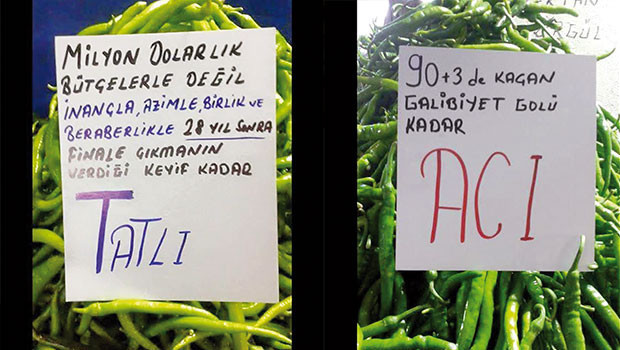 MİLYON DOLARLIK
BÜTGELERLE DEĞİL
İNANGLA, AZİMLE, BİRLİK VE
BERABERLİKLE 28 YIL SONRA
FİNALE GIKMANIN
VERDİĞİ KEYİF KADAR
TATLI
90+3 de KAGAN
GALİBİYET GOLÜ
KADAR
ACI